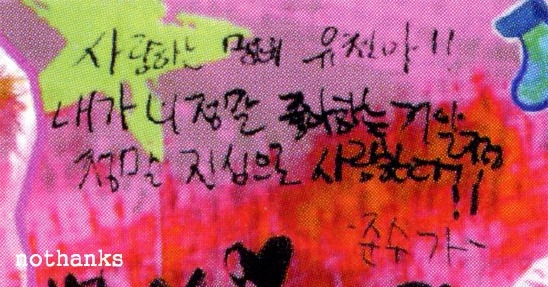 사랑하는 유천아!!
내가 니 정말 좋아하는 거 알
정말 진심으로 사랑한다!!
준수가-
nothanks